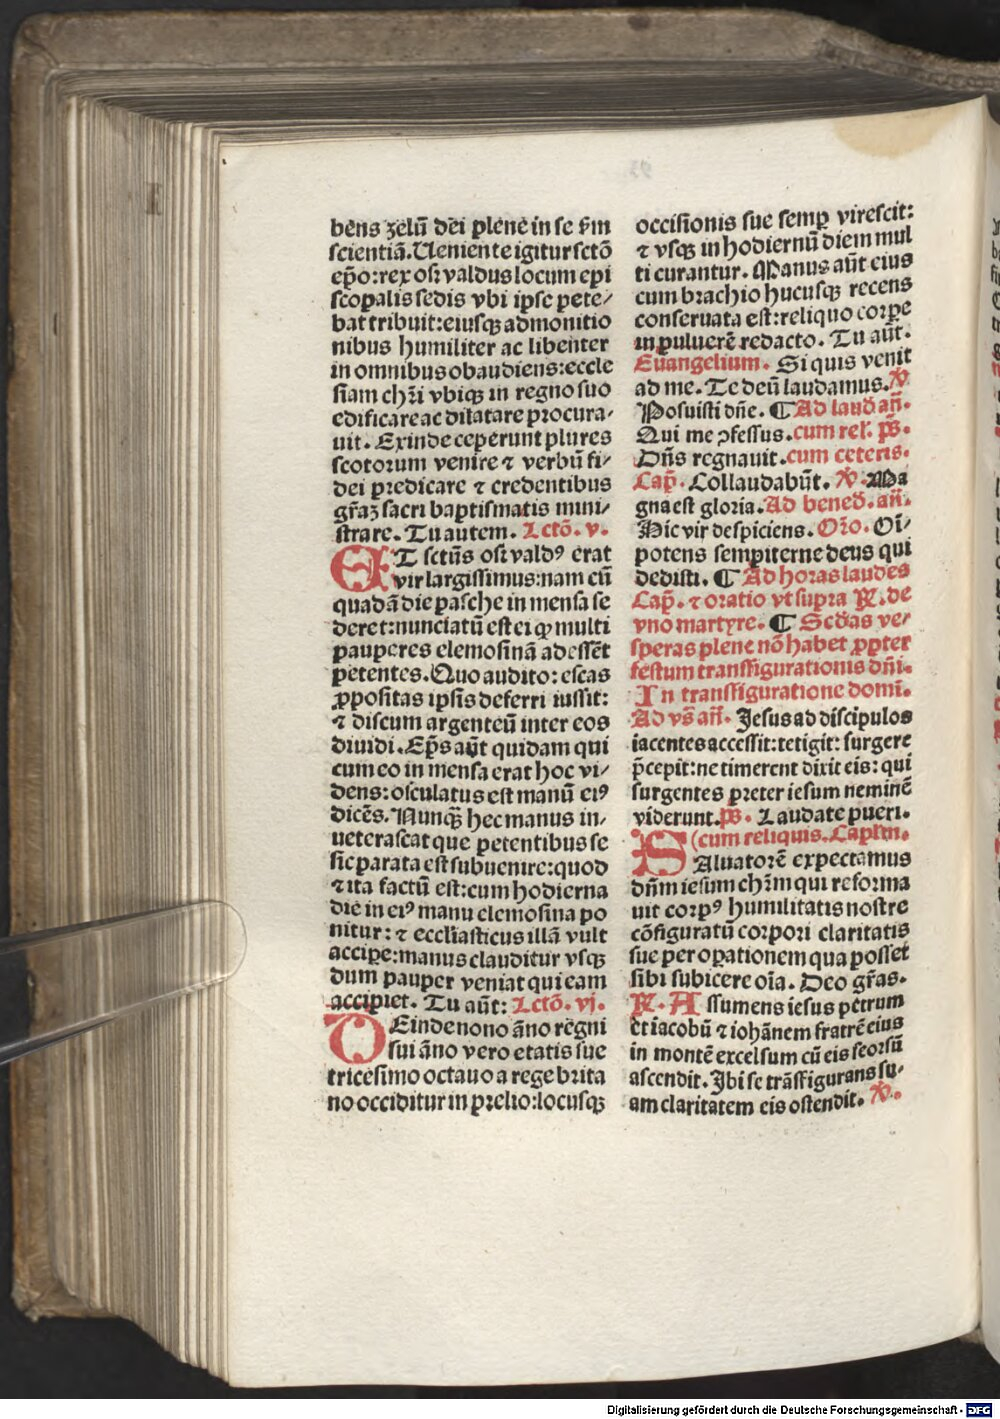 bens zelū dei plene in se ẜm
scientiā. Ueniente igitur sctō
ep̄o: rex osvaldus locum epi
scopalis sedis vbi ipse pete/
bat tribuit: eiusqꝫ admonitio
nibus humiliter ac libenter
in omnibus obaudiens: eccle
siam chr̄i vbiqꝫ in regno suo
edificare ac dilatare procura/
uit. Exinde ceperunt plures
scotorum venire ⁊ verbū fi/
dei predicare ⁊ credentibus
gr̄aꝫ sacri baptismatis mini/
strare. Tu autem. Lctō. v.
ET sctūs osvaldꝰ erat
vir largissimus: nam cū
quadā die pasche in mensa se
deret: nunciatū est ei ꝙ multi
pauperes elemosinā adessēt
petentes. Quo audito: escas
ꝓpositas ipsis deferri iussit:
⁊ discum argenteū inter eos
diuidi. Ep̄s aūt quidam qui
cum eo in mensa erat hoc vi/
dens: osculatus est manū eiꝰ
dicēs. Nunqꝫ̄ hec manus in/
ueterascat que petentibus se
sic parata est subuenire: quod
⁊ ita factū est: cum hodierna
die in eiꝰ manu elemosina po
nitur: ⁊ eccliasticus illā vult
accipe: manus clauditur vsqꝫ
dum pauper veniat qui eam
accipiet. Tu aūt: Lctō. vj.
DEinde nono āno regni
sui āno vero etatis sue
tricesimo octauo a rege brita
no occiditur in prelio: locusqꝫ
occisionis sue semꝑ virescit:
⁊ vsqꝫ in hodiernū diem mul
ti curantur. Manus aūt eius
cum brachio hucusqꝫ recens
conseruata est: reliquo corpe
in puluerē redacto. Tu aūt.
Euangelium. Si quis venit
ad me. Te deū laudamus. ℣
Posuisti dn̄e. ¶ Ad laud an̄.
Qui me ꝯfessus. cum rel. ps̄.
Dn̄s regnauit. cum ceteris.
Cap̄. Collaudabūt. ℣. Ma
gna est gloria. Ad bened. an̄.
Hic vir despiciens. Or̄o. Oī/
potens sempiterne deus qui
dedisti. ¶ Ad horas laudes
Cap̄. ⁊ oratio vt supra ℟. de
vno martyre. ¶ Scdas ve/
speras plene nō habet ꝓpter
festum transfigurationis dn̄i.
In transfiguratione domī.
Ad vs̄ an̄. Jesus ad discipulos
iacentes accessit: tetigit: surgere
p̄cepit: ne timerent dixit eis: qui
surgentes preter iesum neminē
viderunt. ps̄. Laudate pueri.
(cum reliquis. Caplm.
SAluatorē expectamus
dn̄m iesum chr̄m qui reforma
uit corpꝰ humilitatis nostre
cōfiguratū corpori claritatis
sue per oꝑationem qua posset
sibi subicere oīa. Deo gr̄as.
℟. Assumens iesus petrum
et iacobū ⁊ iohānem fratrē eius
in montē excelsum cū eis seorsū
ascendit. Ibi se trāsfigurans su/
am claritatem eis ostendit. ℣.
Digitalisierung gefördert durch die Deutsche Forschungsgemeinschaft - DFG